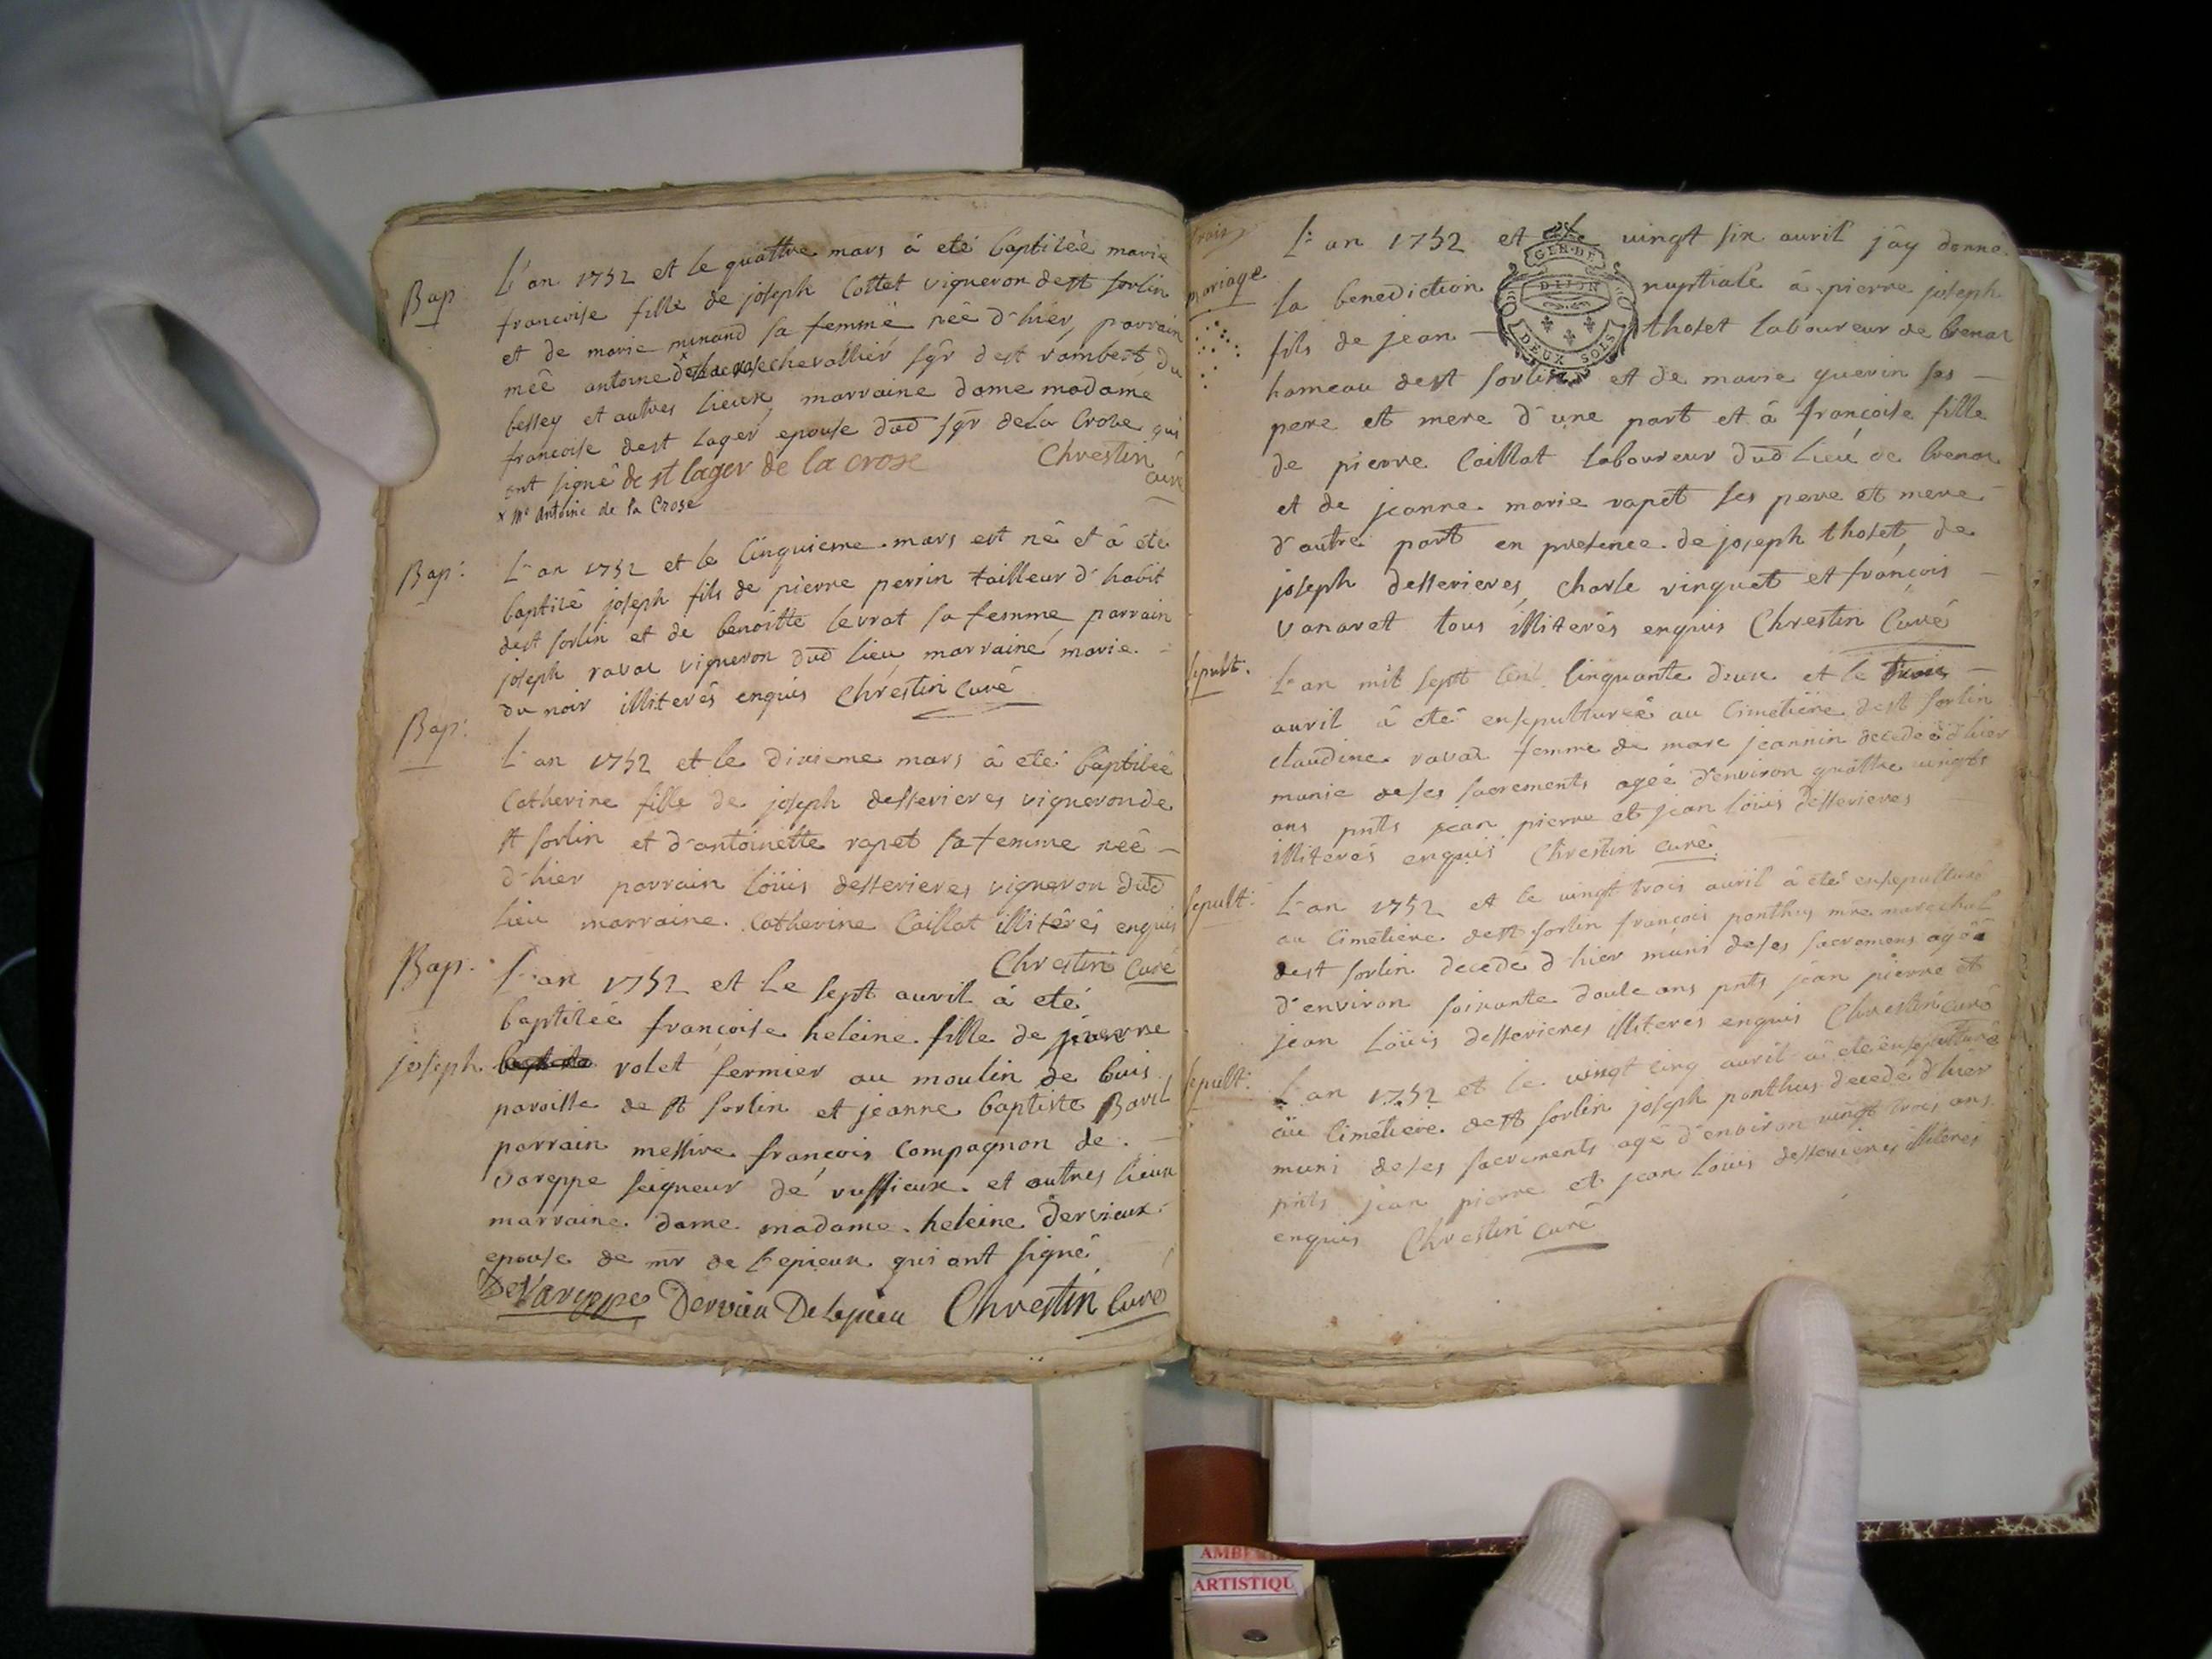 Bap
L'an 1752 et le quattre mars â eté baptisée marie
francoise fille de joseph Cottet vigneron de st sorlin
et de marie munand sa femme née d'hier, parrain
mée antoine chevallier sgr de st rambert du
bessey et autres lieux, marraine dame madame
francoise de st lager epouse dud sgr de la Crose qui
ont signé de st lager de la crose Chrestin curé
x Me Antoine de la Crose
Bap:
L'an 1752 et le Cinquieme mars est né et â été
baptisé joseph fils de pierre perrin tailleur d'habit
de st sorlin et de benoitte levrat sa femme parrain
joseph ravat vigneron dud lieu marraine marie
du noir illiterés enquis Chrestin Curé
Bap:
L'an 1752 et le dixieme mars â eté baptisée
Catherine fille de joseph desserieres vigneron de
st sorlin et d'antoinette rapet sa femme née
d'hier parrain loüis desserieres vigneron dud
lieu marraine Catherine Caillat illiterés enquis
Chrestin Curé
Bap:
L'an 1752 et le sept avril â eté
baptisée françoise heleine fille de pierre
joseph volet fermier au moulin de buis
paroisse de st sorlin et jeanne baptiste Baril
parrain messire françois Compagnon de
Vareppe seigneur de ruffieux et autres lieux
marraine dame madame heleine dervieux
epouse de mr de lepieux qui ont signé
De Vareppe Dervieu De Lepieu Chrestin Curé
trois
Mariage
L'an 1752 et le vingt six avril jäy donné
GEN·DE
DIJON
DEUX SOLS
la benediction nuptiale â pierre joseph
fils de jean thoset laboureur de brenas
hameau de st sorlin et de marie guerin ses
pere et mere d'une part et â françoise fille
de pierre Caillat laboureur dud lieu de brenas
et de jeanne marie rapet ses pere et mere
d'autre part en presence de joseph thoset, de
joseph desserieres, Charle vinguet et françois
vanaret tous illiterés enquis Chrestin Curé
sepult.
L'an mil sept Cent Cinquante deux et le trois
avril â eté ensepulturée au Cimetiere de st sorlin
claudine ravat femme de marc jeannin decedée d'hier
munie de ses sacrements agée d'environ quattre vingts
ans pnts jean pierre et jean loüis desserieres
illiterés enquis Chrestin Curé
sepult:
L'an 1752 et le vingt trois avril â eté ensepulturé
au Cimetiere de st sorlin françois ponthus mre marechal
de st sorlin decedé d'hier muni de ses sacremens agé
d'environ soixante douse ans pnts jean pierre et
jean Loüis desserieres illiteres enquis Chrestin Curé
sepult:
L'an 1752 et le vingt cinq avril â eté ensepulturé
au Cimetiere de st sorlin joseph ponthus decedé d'hier
muni de ses sacrements agé d'environ vingt trois ans
pnts jean pierre et jean Loüis desserieres illiterés
enquis Chrestin Curé
ARTISTIQU